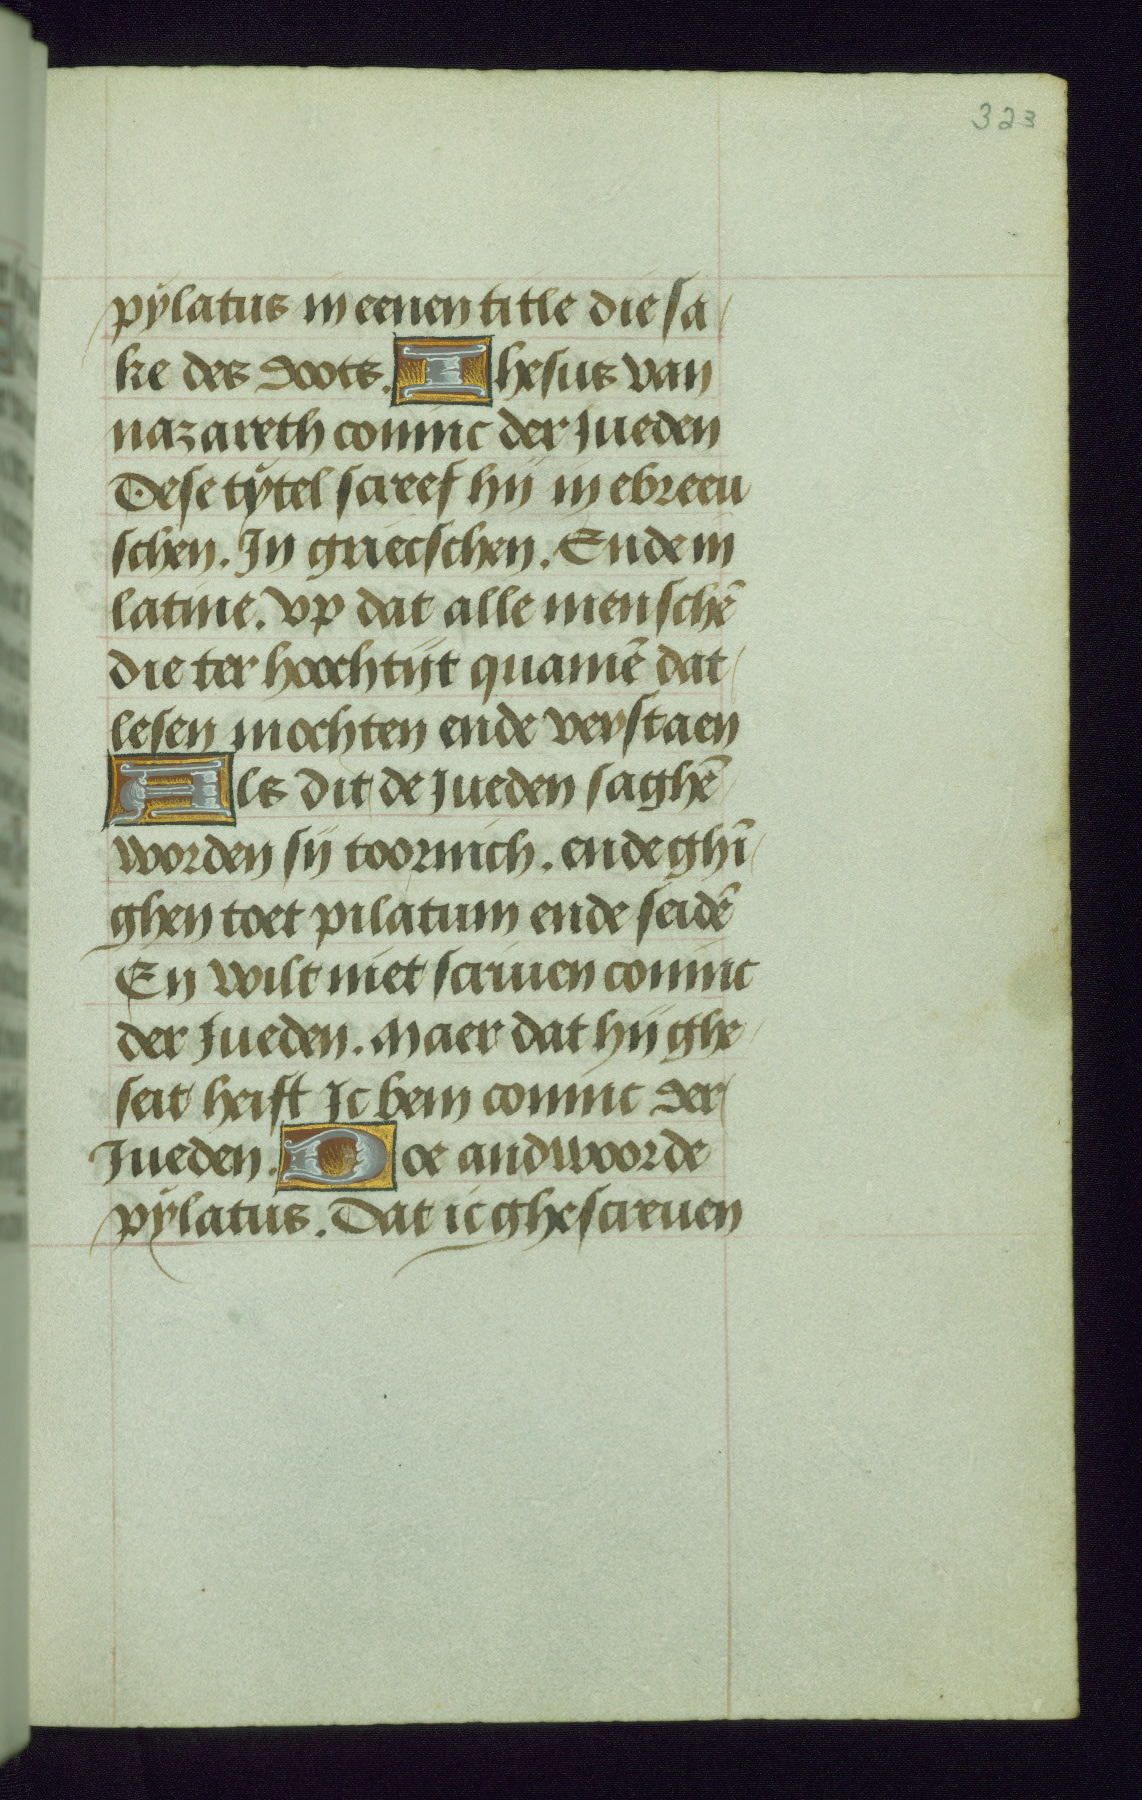 323
pÿlatus in eenen title die sa
ke des doots. Ihesus van
nazareth coninc der Jueden
Dese tÿtel screef hij in ebreeu
schen. In griecschen. Ende in
latine. vp dat alle menschē
die ter hoochtijt quamē dat
lesen mochten ende verstaen
Als dit de Jueden saghē
worden sij toornich. ende ghī
ghen toet pilatum ende seidē
En wilt niet scriuen coninc
der Jueden. Maer dat hij ghe
seit heift Ic bem coninc der
Jueden. Doe andwoorde
pÿlatus. Dat ic ghescreuen